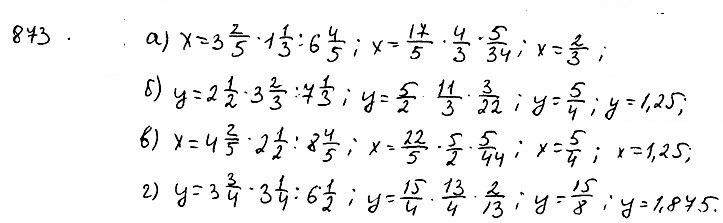 873. а) x = 3 2/5 · 1 1/3 : 6 4/5; x = 17/5 · 4/3 · 5/34; x = 2/3;
б) y = 2 1/2 · 3 2/3 : 7 1/3; y = 5/2 · 11/3 · 3/22; y = 5/4; y = 1,25;
в) x = 4 2/5 · 2 1/2 : 8 4/5; x = 22/5 · 5/2 · 5/44; x = 5/4; x = 1,25;
г) y = 3 3/4 · 3 1/4 : 6 1/2; y = 15/4 · 13/4 · 2/13; y = 15/8; y = 1,875.